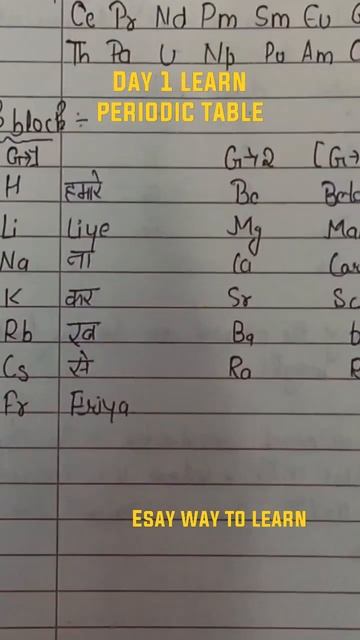 Ce Pr Nd Pm Sm Eu G
Th Pa U Np Pu Am C
DAY 1 LEARN
PERIODIC TABLE
block :-
G→1 G→2 [G→
H हमारे Be
Li Liye Mg Ma
Na ना Ca Car
K कर Sr Sc
Rb रब Ba b
Cs से Ra R
Fr Friya
ESAY WAY TO LEARN